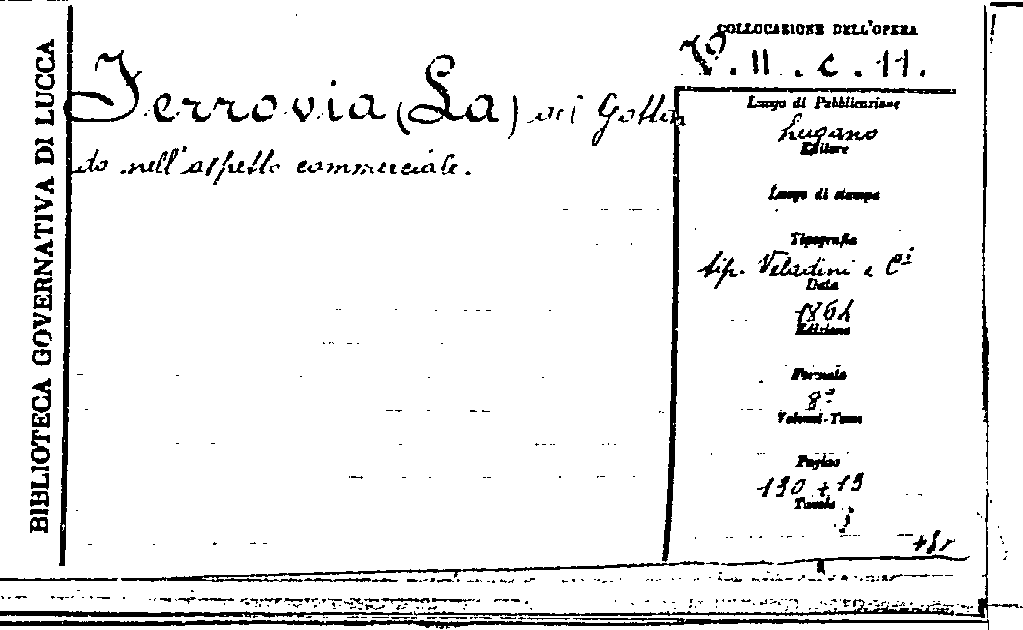 BIBLIOTECA GOVERNATIVA DI LUCCA
Ferrovia (La) del Gottar
do nell'aspetto commerciale.
COLLOCAZIONE DELL'OPERA
II. c. 11.
Luogo di Pubblicazione
Lugano
Editore
Luogo di stampa
Tipografia
tip. Veladini e Cⁱ
Data
1864
Edizione
Formato
8°
Volumi-Tomo
Pagine
130 + 13
Tavole